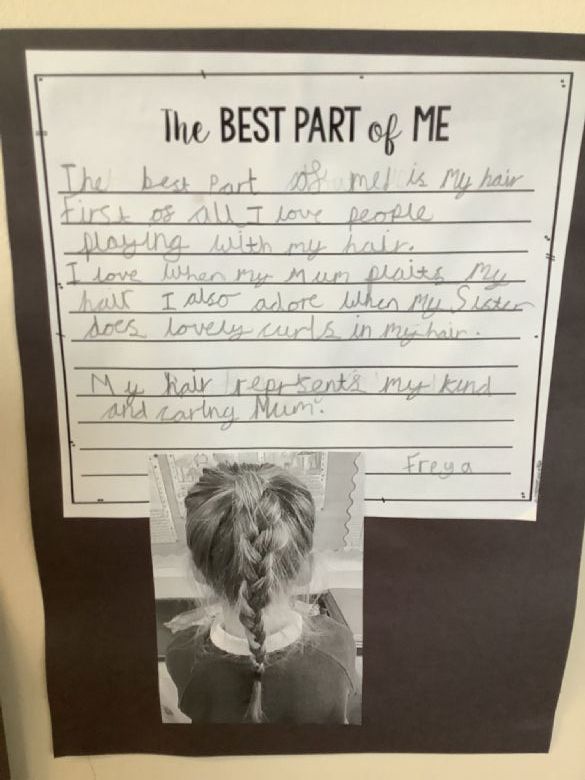 The BEST PART of ME
The best Part of me is My hair
First of all I love people
playing with my hair.
I love when my Mum plaits My
hair I also adore when My Sister
does lovely curls in my hair.
My hair reprsents my kind
and caring Mum.
Freya